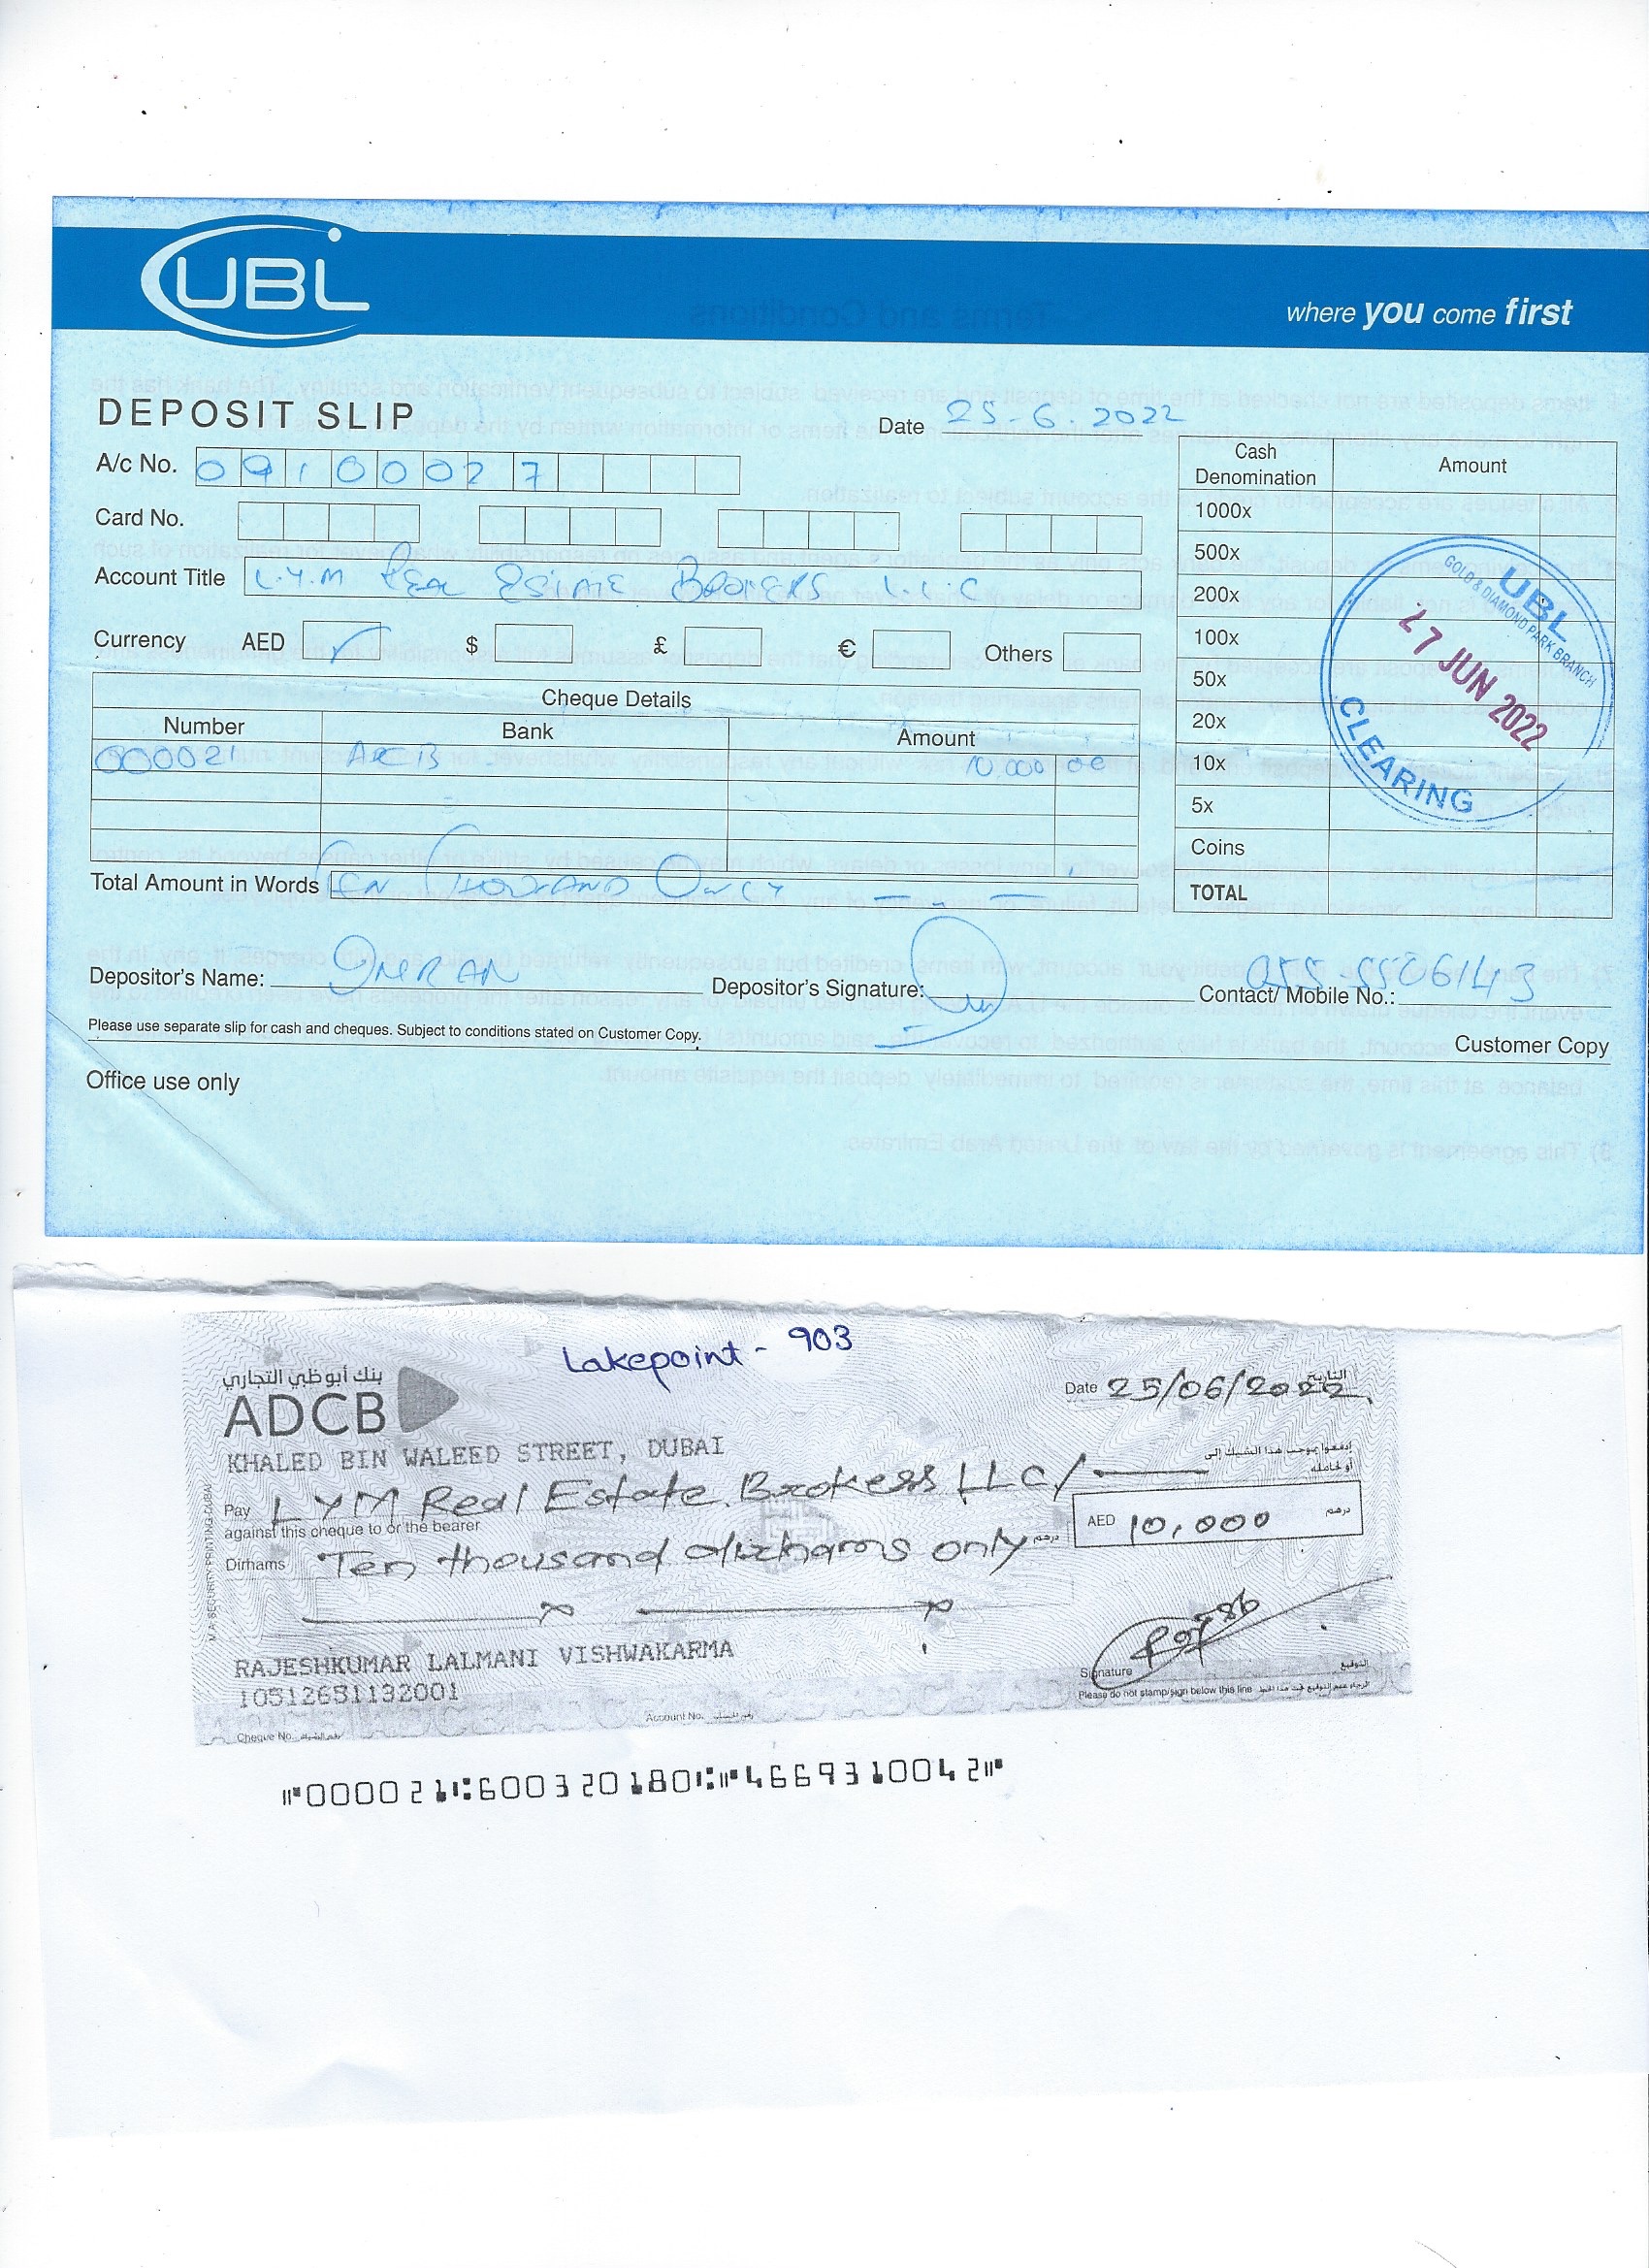 UBL
where you come first
DEPOSIT SLIP
Date 25-6-2022
A/c No. 09100027
Card No.
Account Title L.Y.M REAL ESTATE BROKERS L.L.C
Currency AED $ £ € Others
Cheque Details
Number Bank Amount
000021 ADCB 10,000 00
Total Amount in Words TEN THOUSAND ONLY
Cash Denomination Amount
1000x
500x
200x
100x
50x
20x
10x
5x
Coins
TOTAL
UBL
GOLD & DIAMOND PARK BRANCH
27 JUN 2022
CLEARING
Depositor's Name: IMRAN Depositor's Signature: Contact/ Mobile No.: 055-5506143
Please use separate slip for cash and cheques. Subject to conditions stated on Customer Copy.
Customer Copy
Office use only
Lakepoint - 903
بنك أبوظبي التجاري
ADCB
التاريخ
Date 25/06/2022
KHALED BIN WALEED STREET, DUBAI
إدفعوا بموجب هذا الشيك إلى
أو لحامله
Pay LYM Real Estate Brokers LLC/
against this cheque to or the bearer
AED 10,000 درهم
Dirhams Ten thousand dirhams only درهم
RAJESHKUMAR LALMANI VISHWAKARMA
10512651132001
Signature التوقيع
Please do not stamp/sign below this line
Account No. رقم الحساب
Cheque No. رقم الشيك
000021 600320180 466931004 2